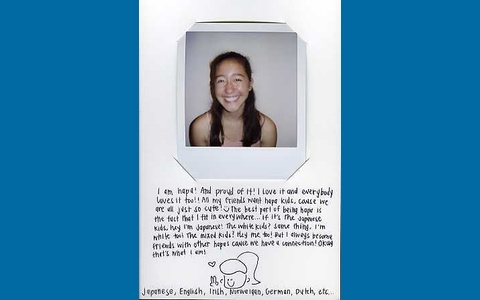 I am hapa! And proud of it! I love it and everybody
loves it too!! All my friends want hapa kids, cause we
are all just so cute! The best part of being hapa is
the fact that I fit in everywhere... if it's the Japanese
kids, hey I'm Japanese! The white kids? Same thing, I'm
white too! The mixed kids? Hey me too! But I always become
friends with other hapas cause we have a connection! Okay
that's what I am!
Me
Japanese, English, Irish, Norwegian, German, Dutch, etc...